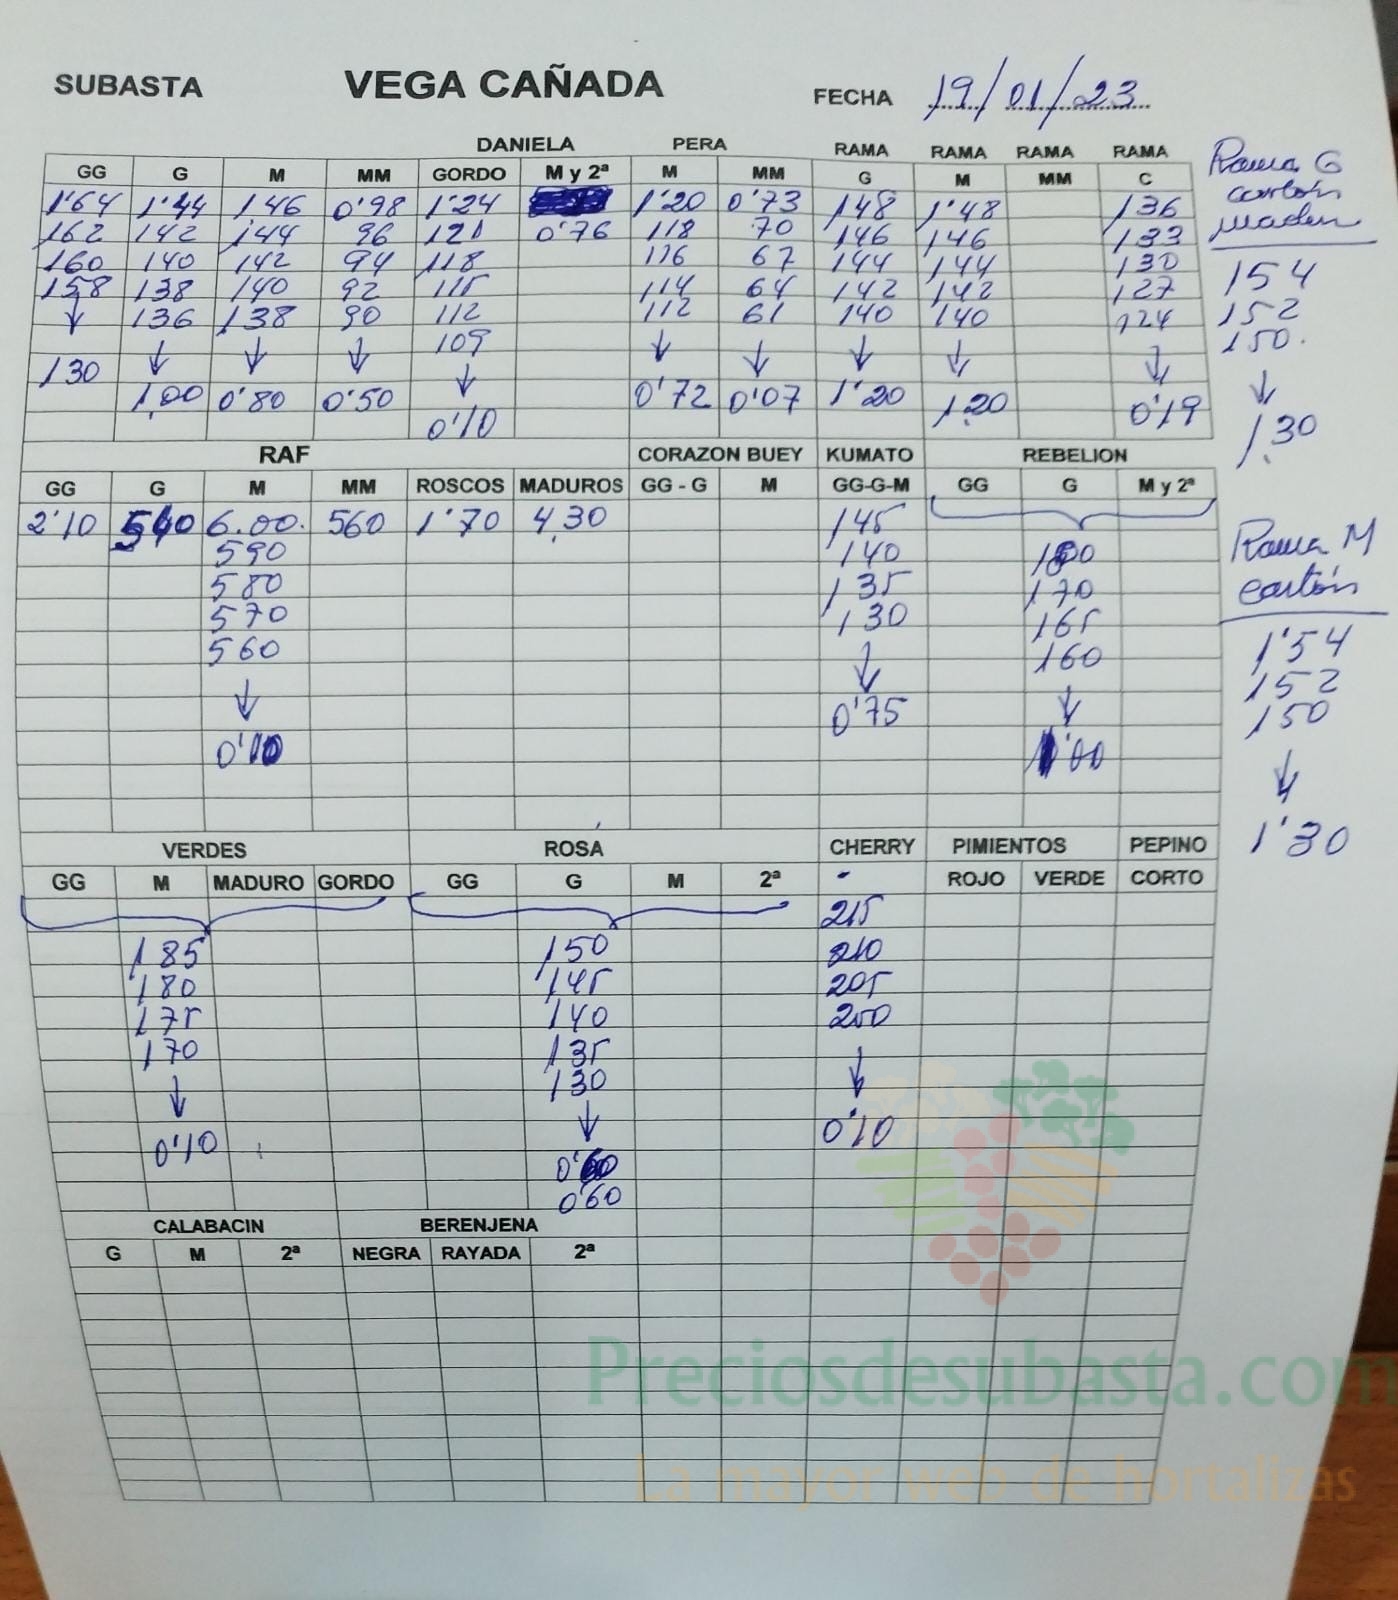 SUBASTA VEGA CAÑADA FECHA 19/01/23
DANIELA PERA RAMA RAMA RAMA RAMA
GG G M MM GORDO M y 2ª M MM G M MM C
1'64 1'44 1,46 0'98 1'24 1'20 0'73 148 1'48 136
162 142 144 96 121 0'76 118 70 146 146 133
160 140 142 94 118 116 67 144 144 130
158 138 140 92 115 114 64 142 142 127
↓ 136 138 90 112 112 61 140 140 124
↓ ↓ ↓ 109 ↓ ↓ ↓ ↓ ↓
130 1,00 0'80 0'50 ↓ 0'72 0'07 1'20 1,20 0'19
0'10
Rama G
cartón
154
152
150.
↓
1,30
RAF CORAZON BUEY KUMATO REBELION
GG G M MM ROSCOS MADUROS GG - G M GG-G-M GG G M y 2ª
2'10 540 6.00. 560 1'70 4,30 145
590 140
580 135 170
570 130 165
560 ↓ 160
↓ 0'75 ↓
0'10 1'00
Rama M
cartón
1'54
152
150
↓
1'30
VERDES ROSA CHERRY PIMIENTOS PEPINO
GG M MADURO GORDO GG G M 2ª - ROJO VERDE CORTO
215
185 150 210
180 145 205
175 140 200
170 135 ↓
↓ 130
0'10 ↓ 0'10
0'60
CALABACIN BERENJENA
G M 2ª NEGRA RAYADA 2ª
Preciosdesubasta.com
La mayor web de hortalizas